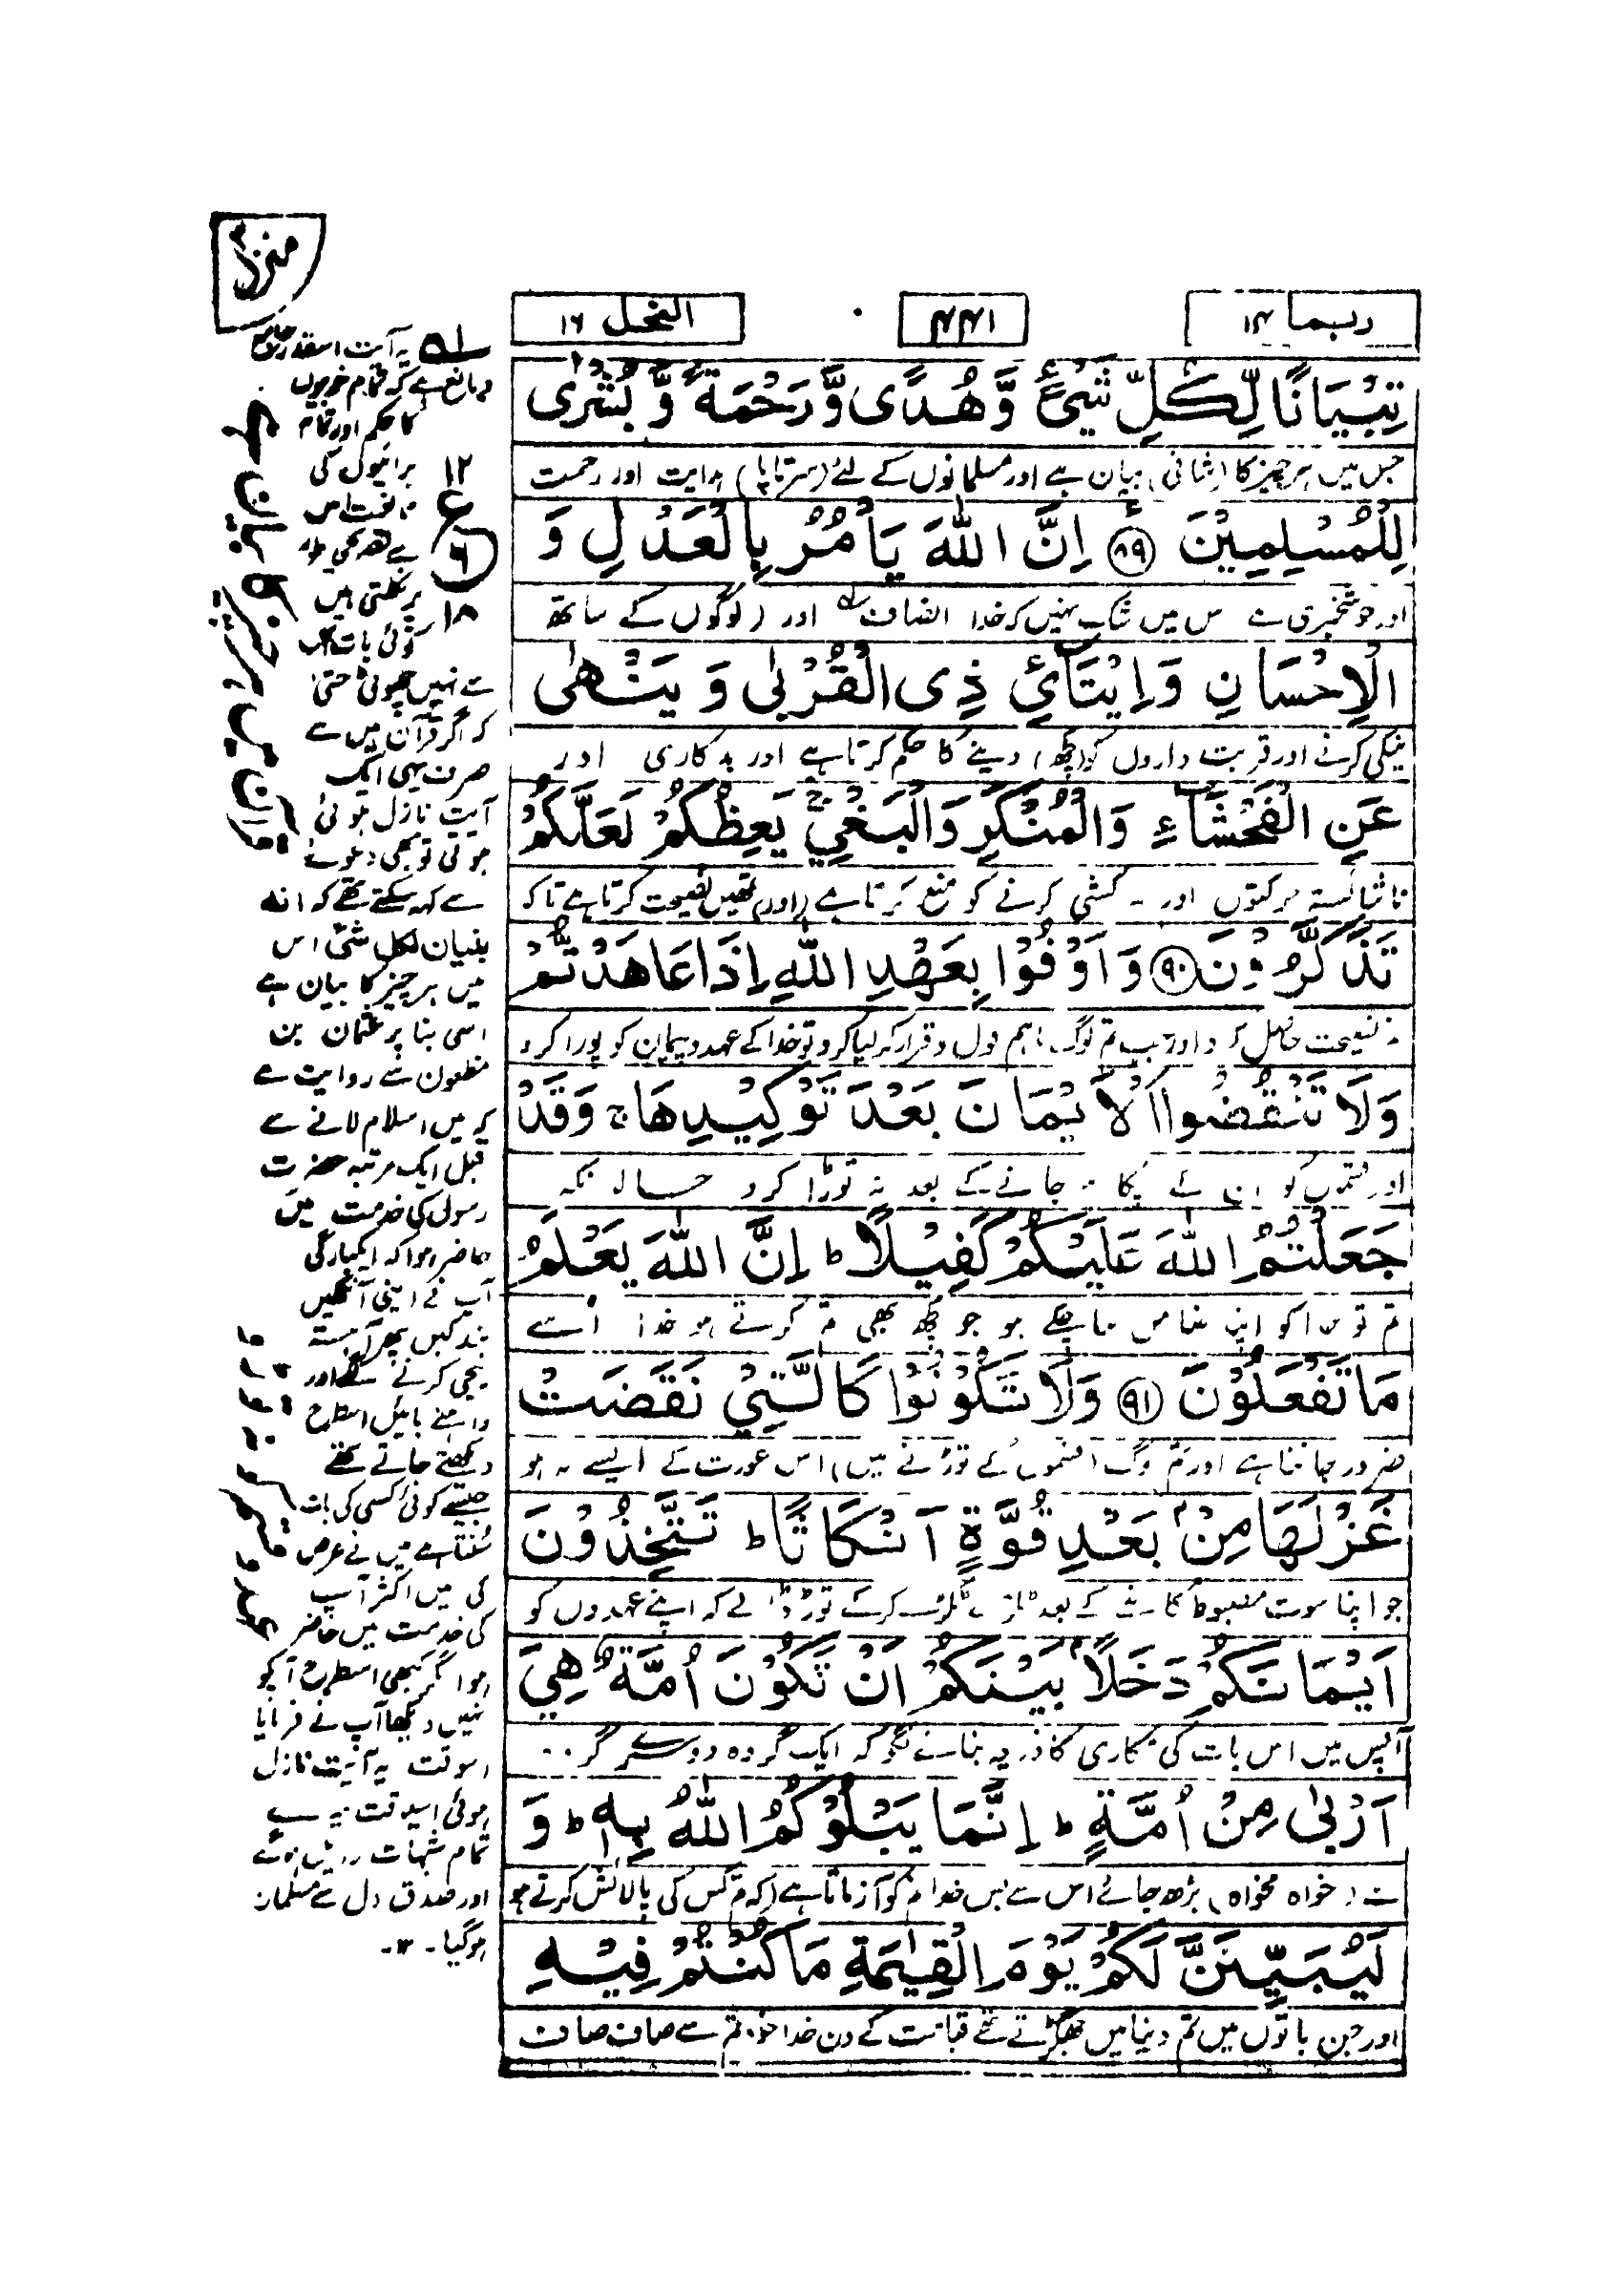 ربما ۱۴
۴۴۱
النحل ۱۶
منزل ۳
تِبْيَانًا لِّكُلِّ شَيْءٍ وَّهُدًى وَّرَحْمَةً وَّبُشْرٰى
جس میں ہر چیز کا (شافی) بیان ہے اور مسلمانوں کے لئے (سرتاپا) ہدایت اور رحمت
لِلْمُسْلِمِيْنَ ﴿۸۹﴾ اِنَّ اللّٰهَ يَاْمُرُ بِالْعَدْلِ وَ
اور خوشخبری ہے س میں شک نہیں کہ خدا انصاف اور (لوگوں کے ساتھ
الْاِحْسَانِ وَاِيْتَآئِ ذِى الْقُرْبٰى وَيَنْهٰى
نیکی کرنے اور قربت داروں کو (کچھ) دینے کا حکم کرتا ہے اور بدکاری اور
عَنِ الْفَحْشَآءِ وَالْمُنْكَرِ وَالْبَغْيِ ۚ يَعِظُكُمْ لَعَلَّكُمْ
ناشائستہ حرکتوں اور کشی کرنے کو منع کرتا ہے (اور) تمھیں نصیحت کرتا ہے تاکہ
تَذَكَّرُوْنَ ﴿۹۰﴾ وَاَوْفُوْا بِعَهْدِ اللّٰهِ اِذَا عَاهَدْتُّمْ
نصیحت حاصل کرو اور جب تم لوگ باہم قول و قرار کر لیا کرو تو خدا کے عہد و پیمان کو پورا کرو
وَلَا تَنْقُضُوا الْاَيْمَانَ بَعْدَ تَوْكِيْدِهَا ۚ وَقَدْ
اور قسموں کو ان کے پکا جانے کے بعد نہ توڑا کرو حالانکہ
جَعَلْتُمُ اللّٰهَ عَلَيْكُمْ كَفِيْلًا ؕ اِنَّ اللّٰهَ يَعْلَمُ
تم تو خدا کو اپنا ضامن بنا چکے ہو جو کچھ بھی تم کرتے ہو خدا اُسے
مَا تَفْعَلُوْنَ ﴿۹۱﴾ وَلَا تَكُوْنُوْا كَالَّتِيْ نَقَضَتْ
ضرور جانتا ہے اور تم لوگ (قسموں کے توڑنے میں) اس عورت کے ایسے نہ ہو
غَزْلَهَا مِنْۢ بَعْدِ قُوَّةٍ اَنْكَاثًا ؕ تَتَّخِذُوْنَ
جو اپنا سوت مضبوط کاتنے کے بعد ٹکڑے ٹکڑے کر کے توڑ ڈالے کہ اپنے عہدوں کو
اَيْمَانَكُمْ دَخَلًاۢ بَيْنَكُمْ اَنْ تَكُوْنَ اُمَّةٌ هِيَ
آپس میں اس بات کی مکاری کا ذریعہ بنانے لگو کہ ایک گروہ دوسرے گر
اَرْبٰى مِنْ اُمَّةٍ ؕ اِنَّمَا يَبْلُوْكُمُ اللّٰهُ بِهٖ ؕ وَ
(خواہ مخواہ) بڑھ جائے اس سے بس خدا تم کو آزماتا ہے (کہ تم کس کی پالائش کرتے ہو
لَيُبَيِّنَنَّ لَكُمْ يَوْمَ الْقِيٰمَةِ مَا كُنْتُمْ فِيْهِ
اور جن باتوں میں تم دنیا میں جھگڑتے تھے قیامت کے دن خدا خود تم سے صاف صاف
۱ یہ آیت اسقدر جامع
و مانع ہے کہ تمام خوبیوں
کا حکم اور تمام
برائیوں کی
ممانعت اس
پر نکلتی ہیں
کوئی بات اس
سے نہیں چھوٹی حتیٰ
کہ اگر قرآن میں سے
صرف یہی ایک
آیت نازل ہوئی
ہوتی تو بھی دعوے
سے کہہ سکتے تھے کہ انہ
تبیان لکل شیٔ اس
میں ہر چیز کا بیان ہے
اسی بنا پر عثمان بن
مظعون سے روایت ہے
کہ میں اسلام لانے سے
قبل ایک مرتبہ حضرت
رسول کی خدمت میں
حاضر ہوا کہ ایکبارگی
آپ نے اپنی آنکھیں
بند کیں پھر آہستہ
نیچی کرنے لگے اور
داہنے بائیں اسطرح
دیکھتے جاتے تھے
جیسے کوئی کسی کی بات
سُنتا ہے میں نے عرض
کی میں اکثر آپ
کی خدمت میں حاضر
ہوا مگر کبھی اسطرح آپکو
نہیں دیکھا آپ نے فرمایا
اسوقت یہ آیت نازل
ہوئی اسیوقت سے
تمام شبہات
اور صدق دل سے مسلمان
ہو گیا۔ ۱۲۔
۱۲
ع
۶
۱۸
قرآن میں ہر چیز کا بیان ہے
عہد و قسم کو نہ توڑو